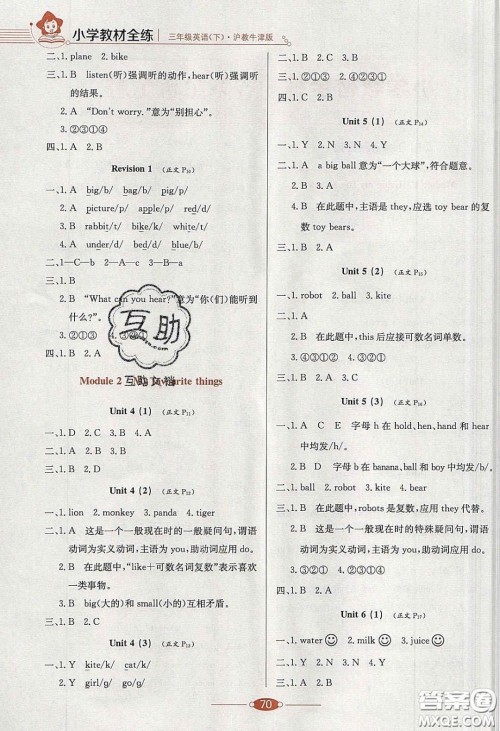 小学教材全练 三年级英语(下)·沪教牛津版
二、1. plane  2. bike
三、1. B  listen(听)强调听的动作，hear(听)强调听
的结果。
2. A  “Don't worry.”意为“别担心”。
3. ②③①④
四、1. A  2. B
Revision 1 (正文 P₁₀)
一、1. A  big/b/  bag/b/
2. A  picture/p/  apple/p/
3. B  rabbit/t/  bike/k/
4. A  under/d/  bed/d/  blue/b/
二、1—C—b  2—A—c  3—B—a
三、1. B
2. B  “What can you hear?”意为“你(们)能听到
什么?”。
3. ②①③  4. ②①③
四、1. B  2. A
互助
互助文档
Module 2  My favourite things
Unit 4 (1) (正文 P₁₁)
一、1. D  2. C  3. B  4. A
二、1. B  2. A  三、1. A  2. B
Unit 4 (2) (正文 P₁₂)
一、1. lion  2. monkey  3. panda  4. tiger
二、1. A  这是一个一般现在时的一般疑问句，谓语
动词为实义动词，主语为 you，助动词应用 do。
2. B  在此题中，“like＋可数名词复数”表示喜欢
一类事物。
3. B  big(大的)和 small(小的)互相矛盾。
三、1. B  2. A
Unit 4 (3) (正文 P₁₃)
一、1. Y  kite/k/  cat/k/
2. Y  girl/g/  go/g/
二、1. B  2. C  3. A
三、1. B  2. A  3. ①②③④
四、1. C  2. B
Unit 5 (1) (正文 P₁₄)
一、1. Y  2. N  3. N  4. Y
二、1. B  2. A  3. C
三、1. A  a big ball 意为“一个大球”，符合题意。
2. B  在此题中，主语是 they，应选 toy bear 的复
数 toy bears。
四、1. B  2. A
Unit 5 (2) (正文 P₁₅)
一、1. robot  2. ball  3. kite
二、1. B  2. A
三、1. B  在此题中，this 后应接可数名词单数。
2. B  3. ①③②④
四、1. B  2. A
Unit 5 (3)
一、1. A  C  E  字母 h 在 hold、hen、hand 和 hear
中均发/h/。
2. A  B  D  字母 b 在 banana、ball 和 boy 中均
发/b/。
二、1. ball  2. robot  3. kite
三、1. B  在此题中，robots 为复数，应用 they 代替。
2. B  在此题中，一般现在时的特殊疑问句，谓语
动词为实义动词，主语为 you，助动词应用 do。
3. ③②①
四、1. A  2. B
Unit 6 (1) (正文 P₁₇)
一、1. water  2. milk  3. juice
二、1. B  2. A
70
答案圈
MXQE.COM